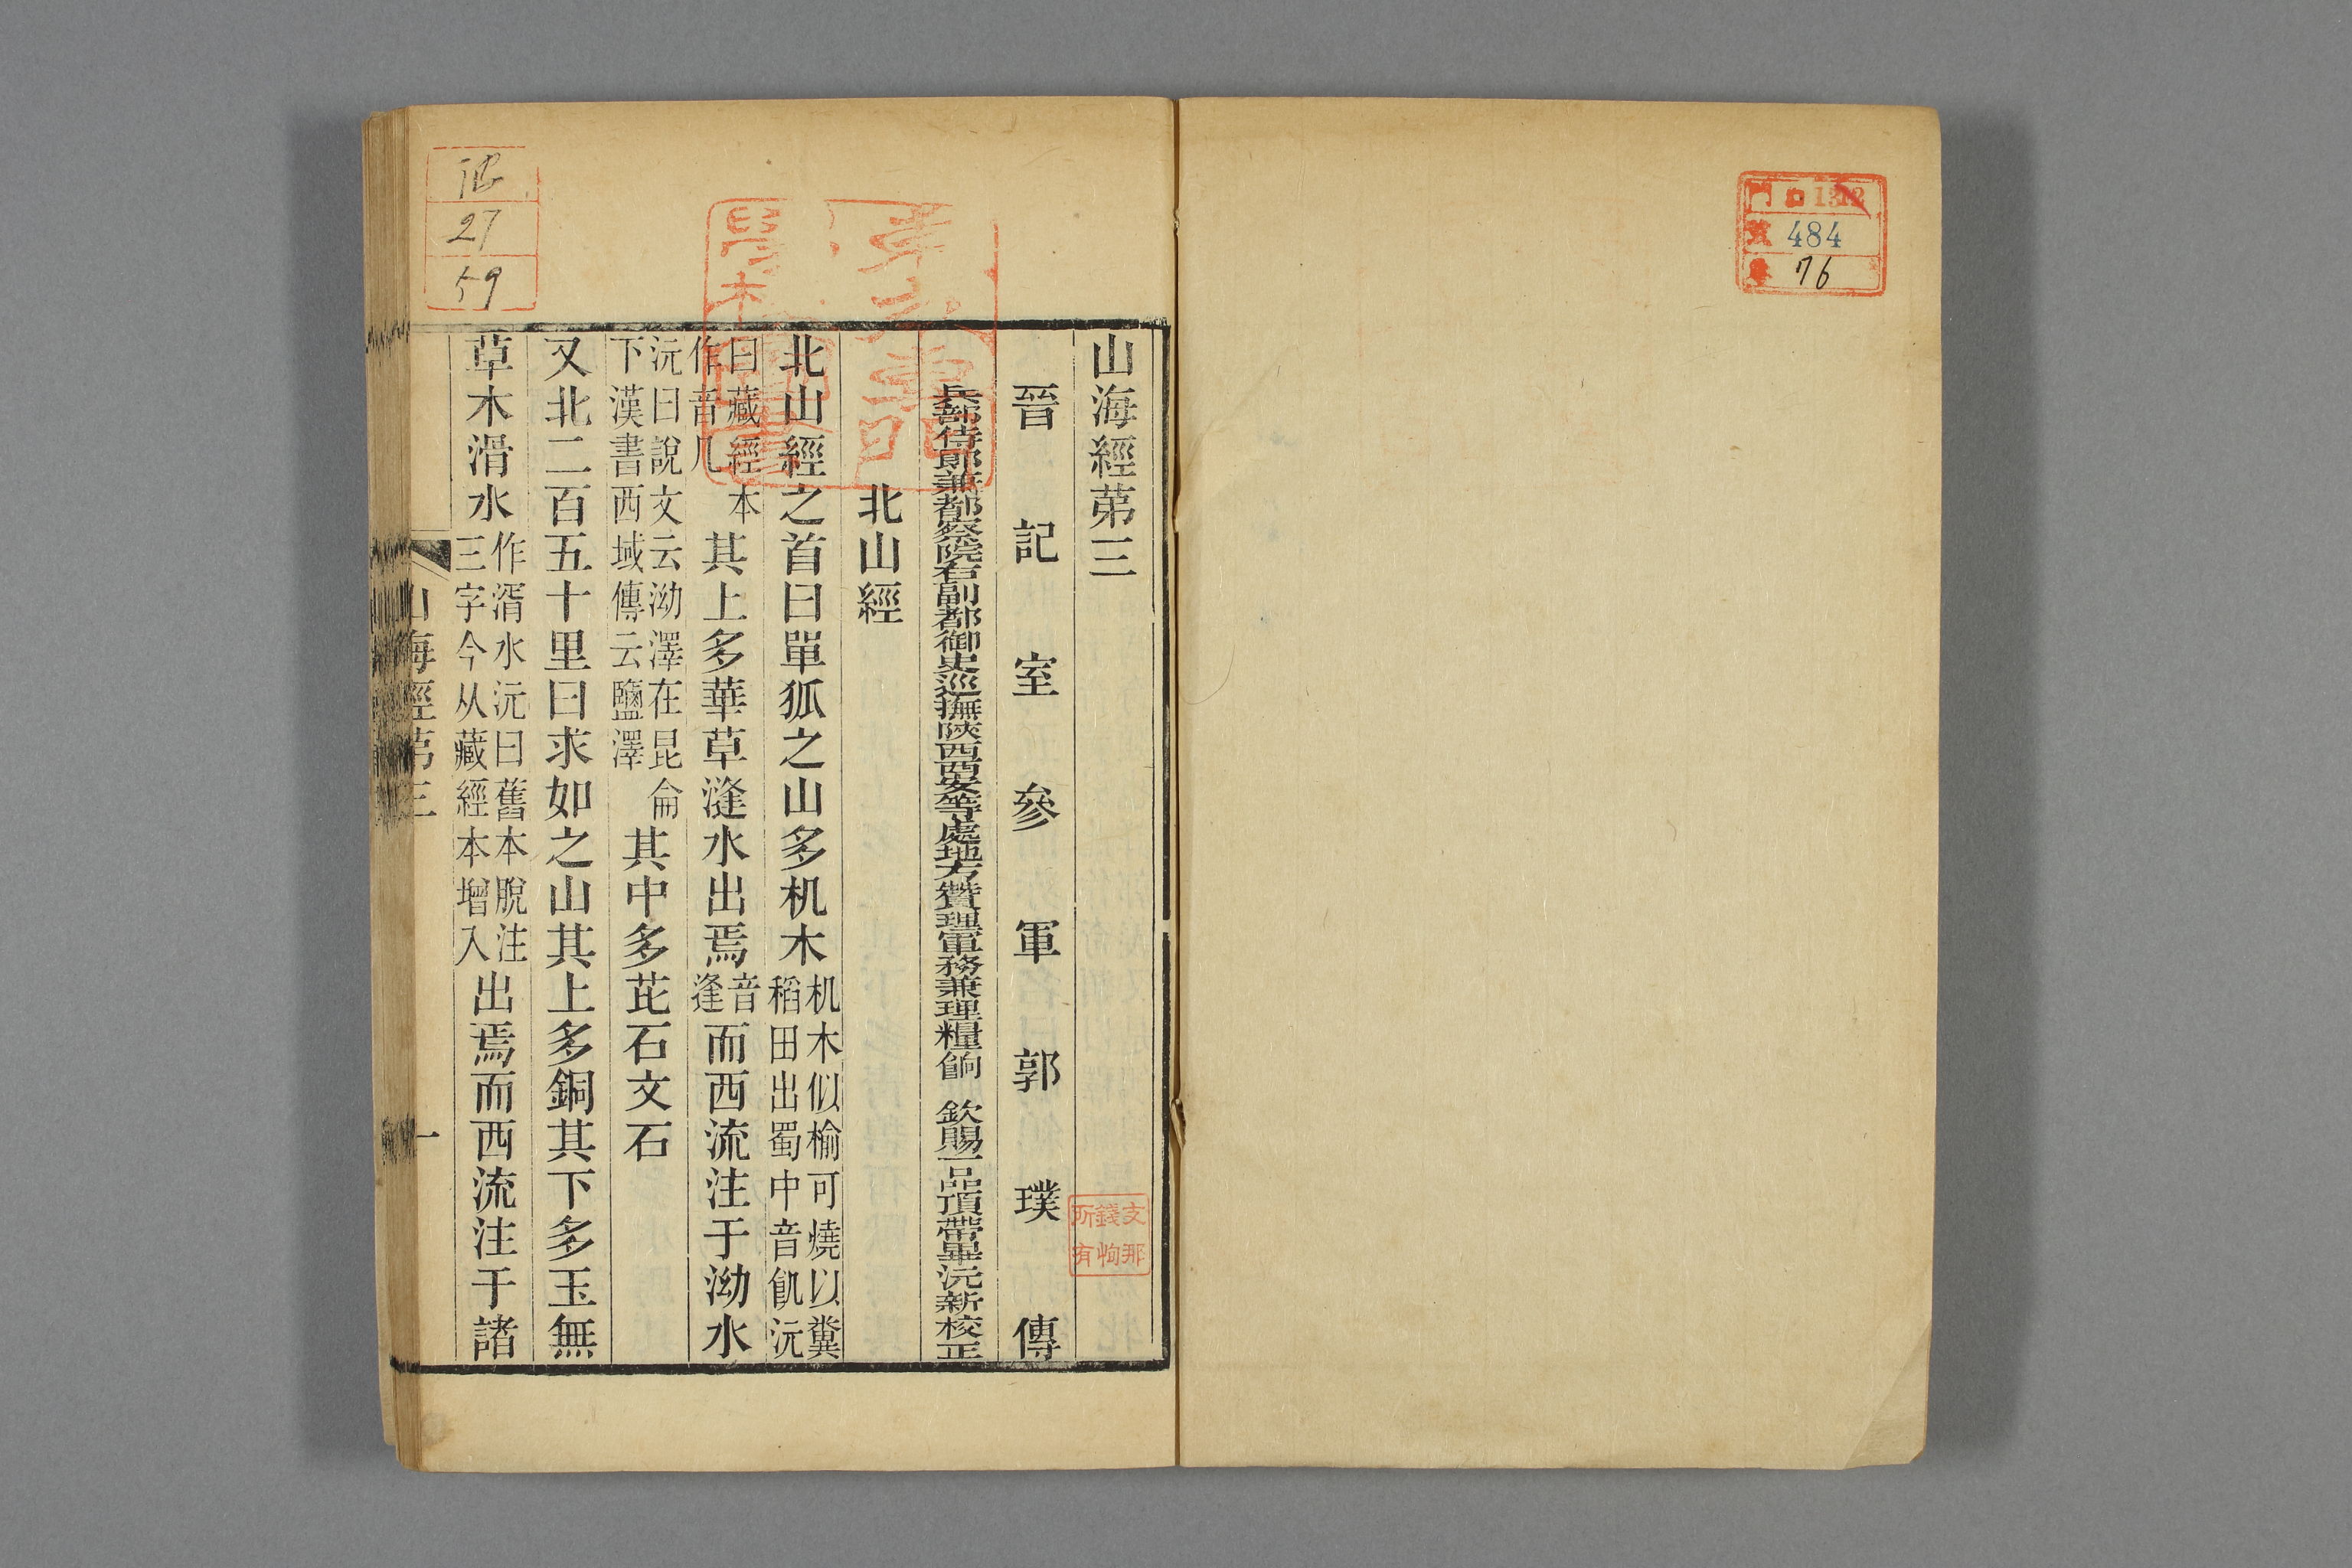 門 1312
號 484
76
山海經第三
晉記室參軍郭璞傳
兵部侍郎兼都察院右副都御史巡撫陝西西安等處地方贊理軍務兼理糧餉 欽賜一品頂帶畢沅新校正
北山經
北山經之首曰單狐之山多机木机木似榆可燒以糞稻田出蜀中音飢沅
曰藏經本作音几其上多華草漨水出焉音逢而西流注于泑水
沅曰說文云泑澤在昆侖下漢書西域傳云鹽澤其中多茈石文石
又北二百五十里曰求如之山其上多銅其下多玉無
草木滑水作湑水沅曰舊本脫注三字今从藏經本增入出焉而西流注于諸
山海經第三
一
支那
錢恂
所有
27
59